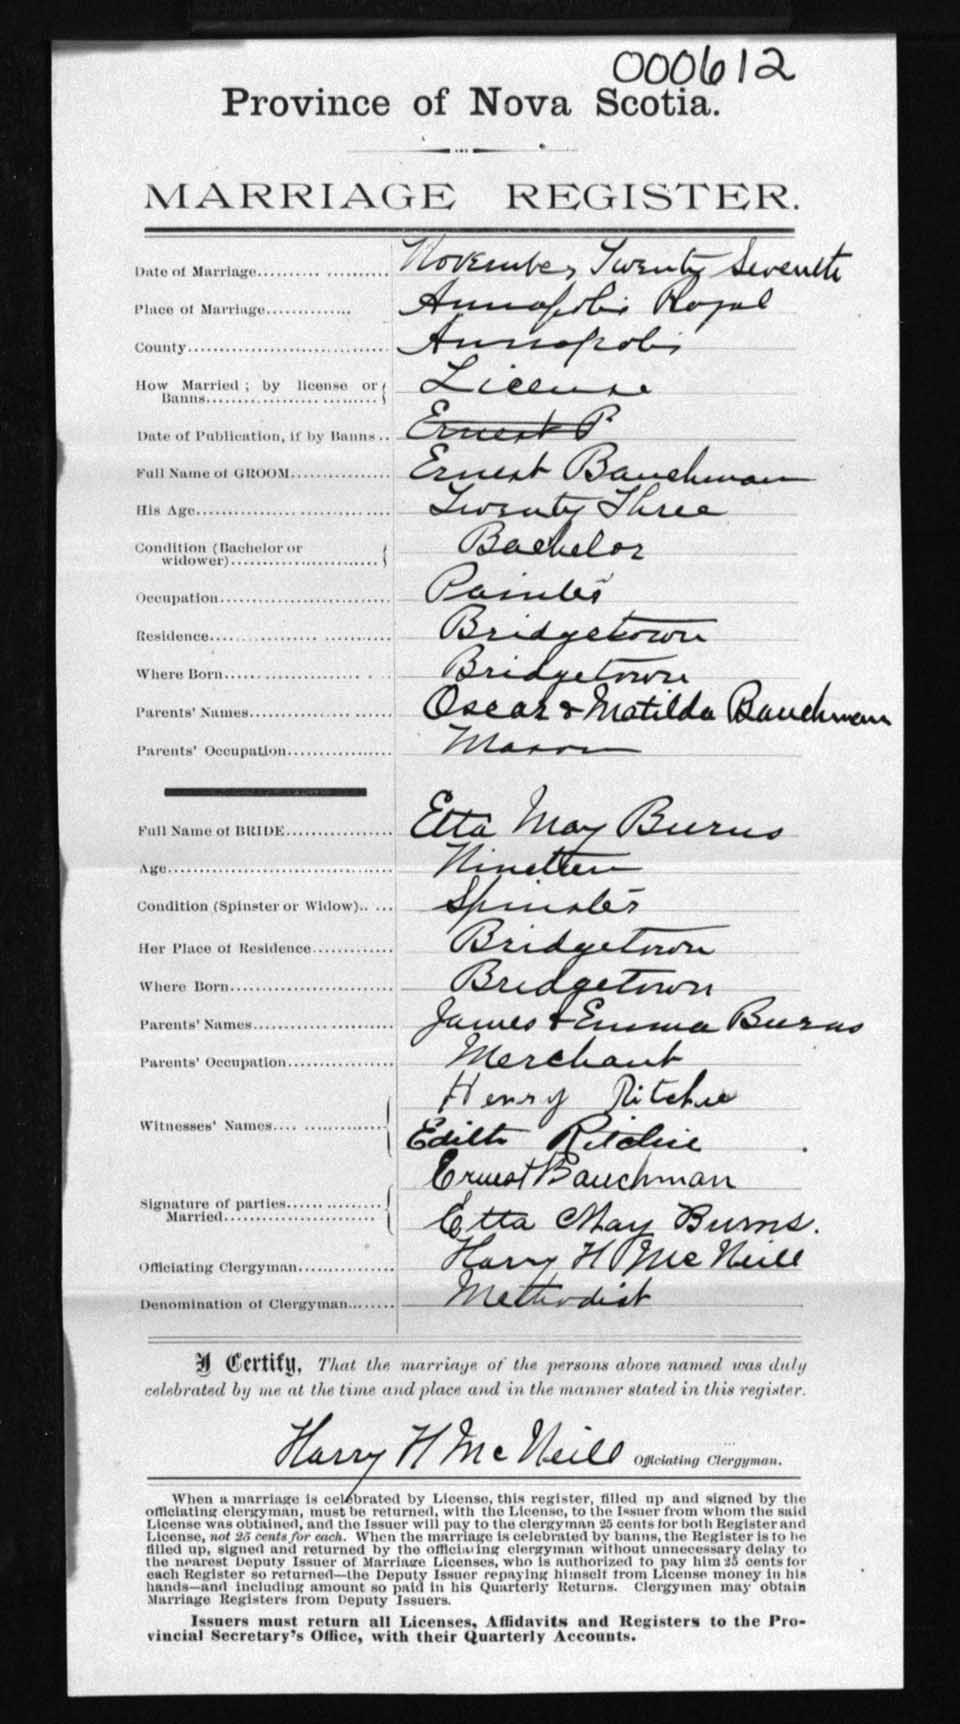 000612
Province of Nova Scotia.
MARRIAGE REGISTER.
Date of Marriage.......... .......... November Twenty Seventh
Place of Marriage.............. Annapolis Royal
County................................ Annapolis
How Married ; by license or { License
Banns................... .........}
Date of Publication, if by Banns.. Ernest B
Full Name of GROOM................ Ernest Bauchman
His Age................................ Twenty Three
Condition (Bachelor or { Bachelor
widower)........................
Occupation........................... Painter
Residence............................ Bridgetown
Where Born.......................... Bridgetown
Parents' Names...................... Oscar & Matilda Bauchman
Parents' Occupation................ Mason
Full Name of BRIDE................. Etta May Burns
Age.................................... Nineteen
Condition (Spinster or Widow).. ... Spinster
Her Place of Residence............. Bridgetown
Where Born.......................... Bridgetown
Parents' Names...................... James & Emma Burns
Parents' Occupation................ Merchant
Henry Ritchie
Witnesses' Names.... .............
Edith Ritchie
Ernest Bauchman
Signature of parties................
Married........................
Etta May Burns.
Officiating Clergyman............... Harry H McNeill
Denomination of Clergyman........ Methodist
I Certify, That the marriage of the persons above named was duly
celebrated by me at the time and place and in the manner stated in this register.
Harry H McNeill Officiating Clergyman.
When a marriage is celebrated by License, this register, filled up and signed by the
officiating clergyman, must be returned, with the License, to the Issuer from whom the said
License was obtained, and the Issuer will pay to the clergyman 25 cents for both Register and
License, not 25 cents for each. When the marriage is celebrated by banns, the Register is to be
filled up, signed and returned by the officiating clergyman without unnecessary delay to
the nearest Deputy Issuer of Marriage Licenses, who is authorized to pay him 25 cents for
each Register so returned—the Deputy Issuer repaying himself from License money in his
hands—and including amount so paid in his Quarterly Returns. Clergymen may obtain
Marriage Registers from Deputy Issuers.
Issuers must return all Licenses, Affidavits and Registers to the Pro-
vincial Secretary's Office, with their Quarterly Accounts.